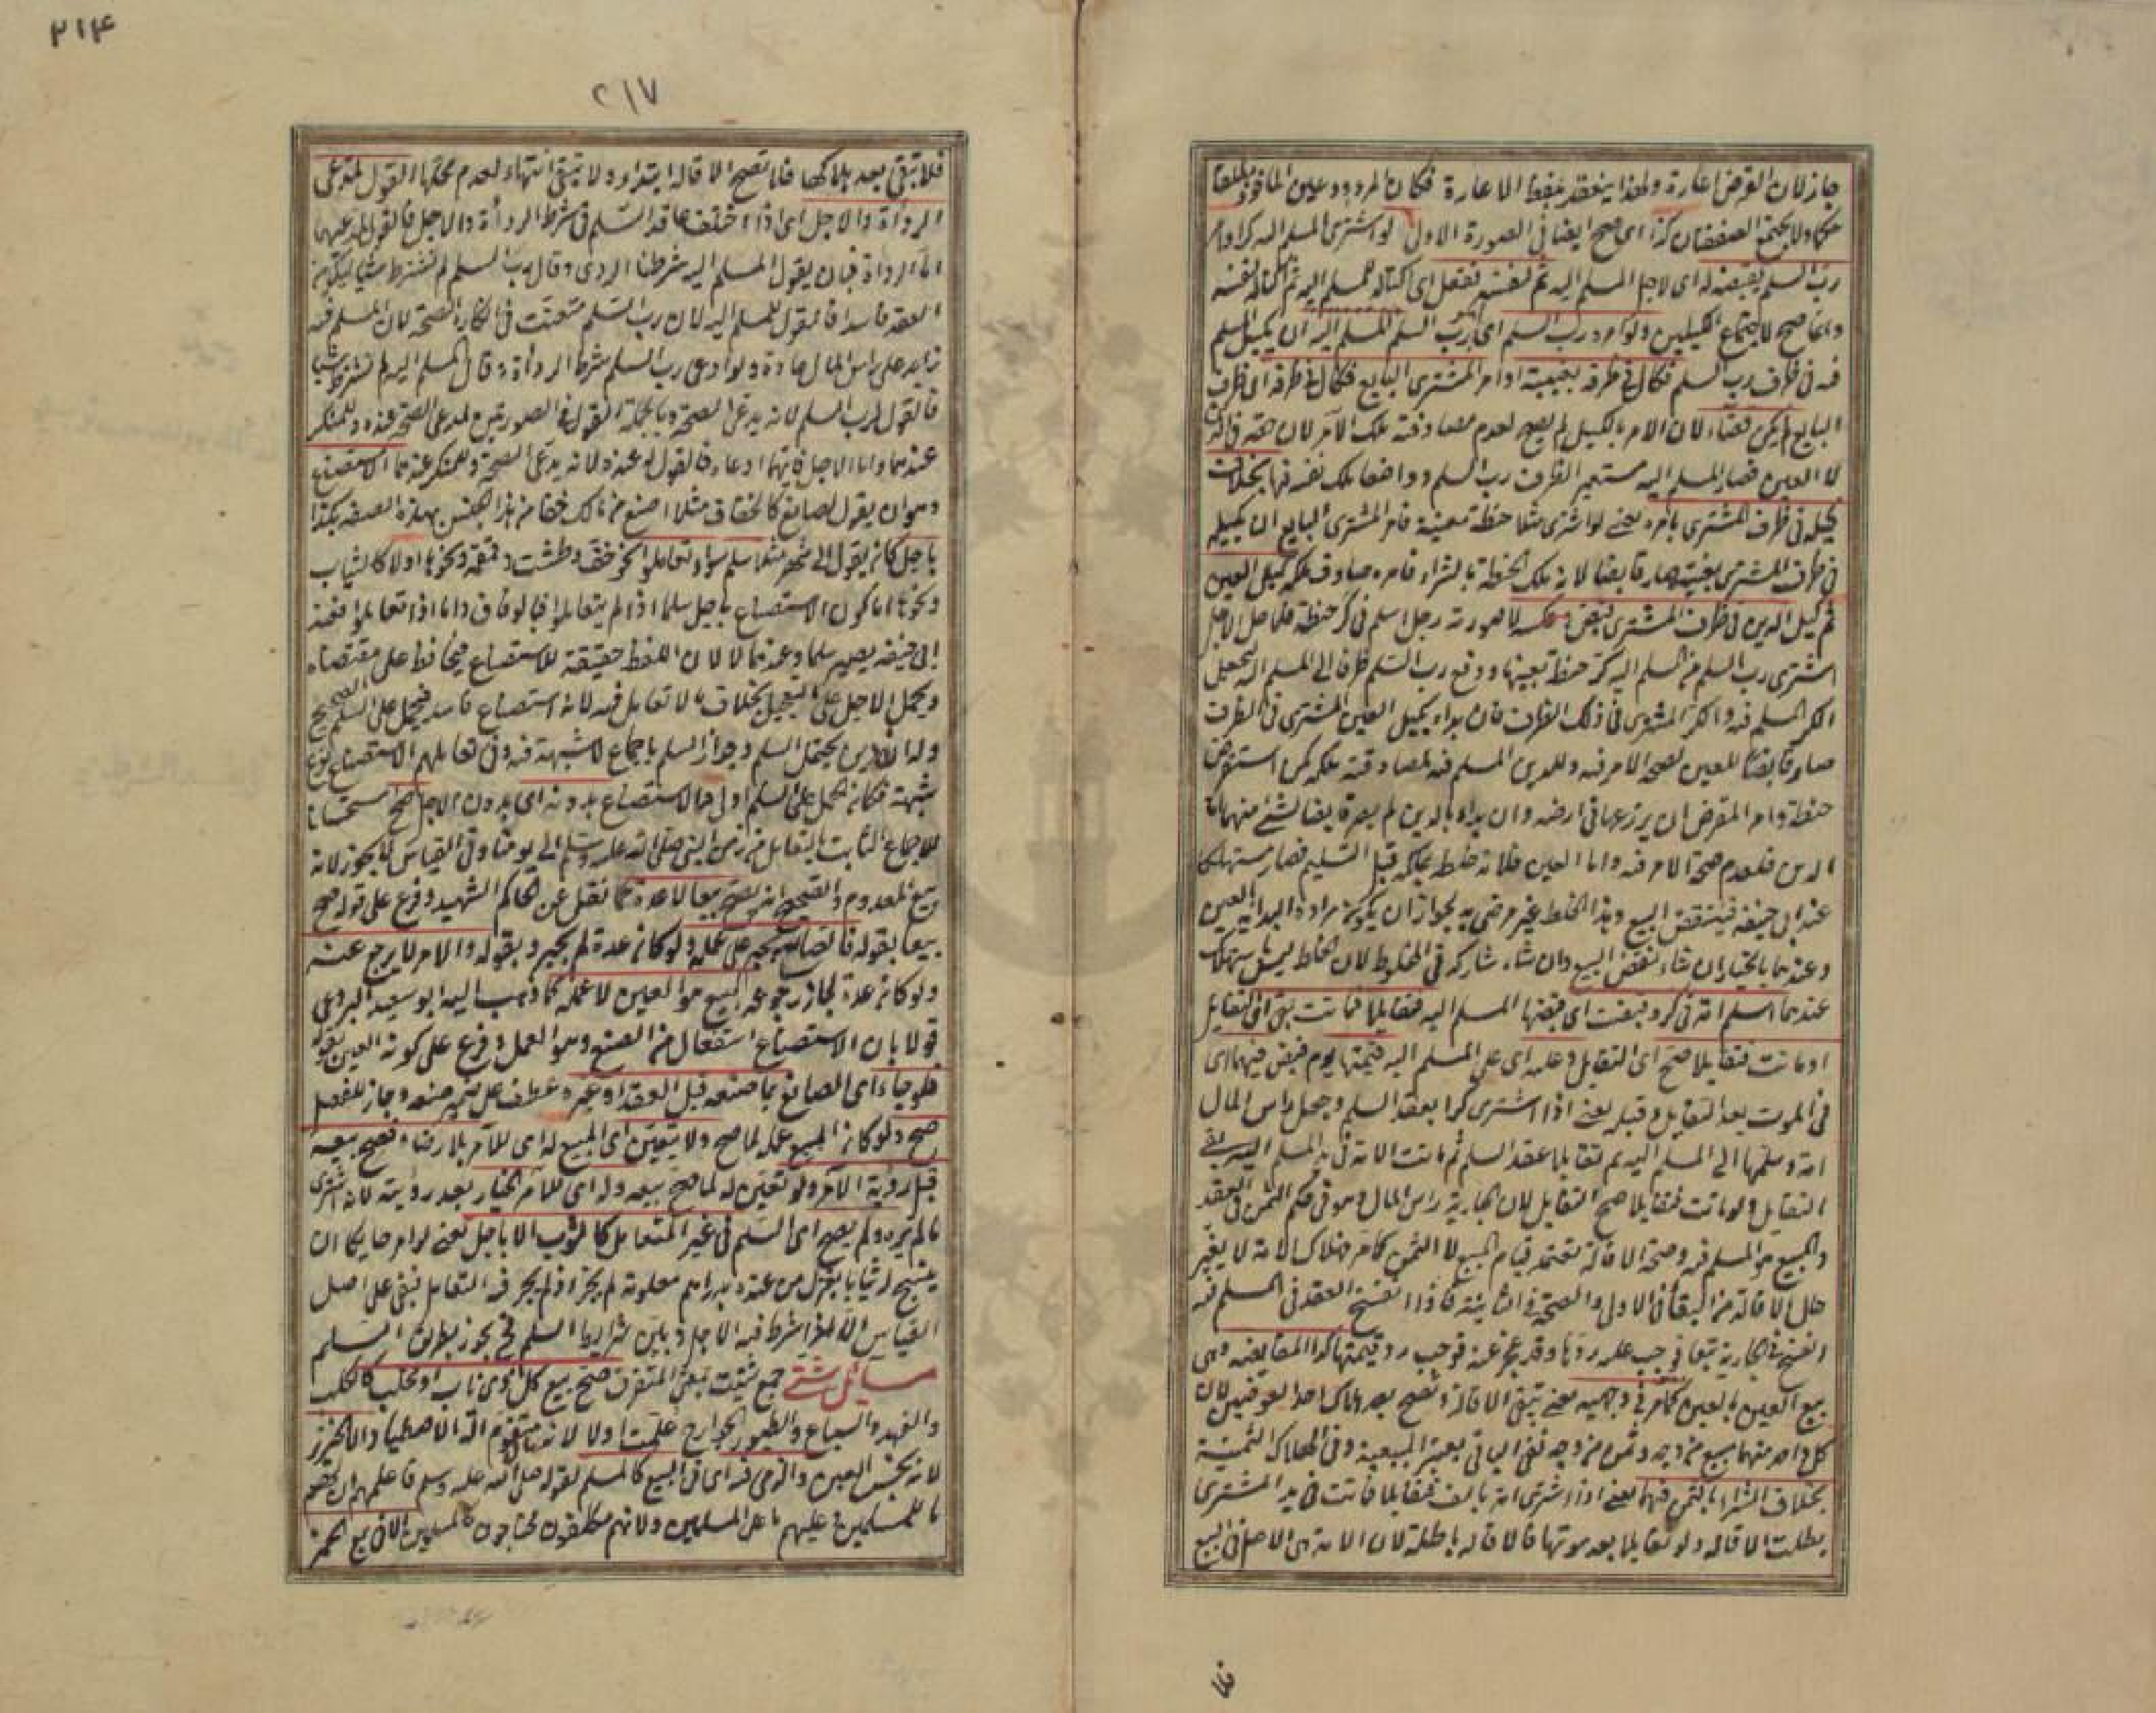 جاز لان القرض اعارة ولهذا ينعقد بلفظ الاعارة فكان المردود عين المأخوذ مطلقا
حكما ولا يجتمع الصفقتان كذا اى صح ايضا فى الصورة الاولى لو اشترى المسلم اليه كرا وامر
رب السلم بقبضه له اى لاجل المسلم اليه ثم لنفسه ففعل اى اكتاله للمسلم اليه ثم اكتاله لنفسه
وانما صح لاجتماع الكيلين ولو امر رب السلم اى رب السلم المسلم اليه ان يكيل المسلم
فيه فى ظرف رب السلم فكال فى ظرفه بغيبته او امر المشترى البايع فكال فى ظرفه اى ظرف
البايع لم يكن قبضا لان الامر بالكيل لم يصح لعدم مصادفته ملك الآمر لان حقه فى الدين
لا العين فصار المسلم اليه مستعير الظرف رب السلم وواضعا ملك نفسه فيها بخلاف
كيله فى ظرف المشترى بامره يعنى لو اشترى مثلا حنطة معينة فامر المشترى البايع ان يكيله
فى ظرف المشترى بغيبته صار قابضا لانه ملك الحنطة بالشراء فامره صادف ملكه كيل العين
ثم كيل الدين فى ظرف المشترى قبض عكسه لا صورته رجل اسلم فى كر حنطة فلما حل الاجل
اشترى رب السلم من المسلم اليه كر حنطة بعينها ودفع رب السلم ظرفا الى المسلم اليه ليجعل
الكر المسلم فيه والكر المشترى فى ذلك الظرف فان بدأ بكيل العين المشترى فى الظرف
صار قابضا للعين لصحة الامر فيه وللدين المسلم فيه لمصادفته ملكه كمن استقرض
حنطة وامر المقرض ان يزرعها فى ارضه وان بدأ بالدين لم يصر قابضا لشئ منهما اما
الدين فلعدم صحة الامر فيه واما العين فلانه خلط بملكه قبل التسليم فصار مستهلكا
عند ابى حنيفه فينتقض البيع وهذا الخلط غير مرضى به لجواز ان يكون مراده البداية بالعين
وعندهما بالخيار ان شاء نقض البيع وان شاء شاركه فى المخلوط لان الخلط ليس باستهلاك
عندهما اسلم امة فى كر وقبضت اى قبضها المسلم اليه فتقايلا فماتت بقى اى التقايل
او ماتت فتقايلا صح اى التقايل وعليه اى على المسلم اليه قيمتها يوم قبض فيهما اى
فى الموت بعد التقايل وقبله يعنى اذا اشترى كرا بعقد السلم وجعل راس المال
امة وسلمها الى المسلم اليه ثم تقايلا عقد السلم ثم ماتت الامة فى يد المسلم اليه بقى
التقايل ولو ماتت فتقايلا صح التقايل لان الجارية راس المال وهو فى حكم الثمن فى العقد
والمبيع هو المسلم فيه وصحة الاقالة تعتمد قيام المبيع لا الثمن كما مر فهلاك الامة لا يغير
حال الاقالة من البقاء فى الاولى والصحة فى الثانية فاذا انفسخ العقد فى المسلم فيه
انفسخ فى الجارية تبعا فوجب عليه ردها وقد عجز عنه فوجب رد قيمتها كذا المقايضة وهى
بيع العين بالعين كما مر فى وجهيه يعنى تبقى الاقالة وتصح بعد هلاك احد العوضين لان
كل واحد منهما مبيع من وجه وثمن من وجه ففى الباقى يعتبر المبيعية وفى الهالك الثمنية
بخلاف الشراء بالثمن فيهما يعنى اذا اشترى امة بالف فتقايلا فماتت فى يد المشترى
بطلت الاقالة ولو تقايلا بعد موتها فالاقالة باطلة لان الامة هى الاصل فى البيع
فلا
٢١٤
٢١٧
فلا تبقى بعد هلاكها فلا تصح الاقالة ابتداء ولا تبقى انتهاء لعدم محلها القول لمدعى
الرداءة والاجل اى اذا اختلف عاقد السلم فى شرط الرداءة والاجل فالقول لمدعيهما
اما الرداءة فبان يقول المسلم اليه شرطنا الردى وقال رب السلم لم نشترط شيئا ليكون
العقد فاسدا فالقول للمسلم اليه لان رب السلم متعنت فى انكاره الصحة لان المسلم فيه
زايد على راس المال عادة ولو ادعى رب السلم شرط الرداءة وقال المسلم اليه لم نشترط شيئا
فالقول لرب السلم لانه يدعى الصحة وبالجملة القول فى الصورتين لمدعى الصحة عنده وللمنكر
عندهما واما الاجل فايهما ادعاه فالقول له عنده لانه يدعى الصحة وللمنكر عندهما الاستصناع
وهو ان يقول لصانع كالخفاف مثلا اصنع من مالك خفا من هذا الجنس بهذه الصفة بكذا
باجل كان يقول الى شهر مثلا سلم سواء تعاملوا نحو خف وطشت وقمقمة ونحوها اولا كالثياب
ونحوها اما كون الاستصناع باجل سلما اذا لم يتعاملوا فبالوفاق واما اذا تعاملوا فعند
ابى حنيفه يصير سلما وعندهما لا لان اللفظ حقيقة للاستصناع فيحافظ على مقتضاه
ويحمل الاجل على التعجيل بخلاف ما لا تعامل فيه لانه استصناع فاسد فيحمل على السلم الصحيح
وله انه دين يحتمل السلم وجواز السلم باجماع لا شبهة فيه وفى تعاملهم الاستصناع نوع
شبهة فكان الحمل على السلم اولى والاستصناع بدونه اى بدون الاجل صح استحسانا
للاجماع الثابت بالتعامل من زمن النبى صلى الله عليه وسلم الى يومنا وفى القياس لا يجوز لانه
بيع المعدوم والصحيح انه يصح بيعا لا عدة كما نقل عن الحاكم الشهيد وفرع على قوله صح
بيعا بقوله فالصانع يجبر على عمله ولو كان عدة لم يجبر وبقوله والآمر لا يرجع عنه
ولو كان عدة لجاز رجوعه المبيع هو العين لا عمله كما ذهب اليه ابو سعيد البردعى
قولا بان الاستصناع استفعال من الصنع وهو العمل وفرع على كونه العين بقوله
فلو جاء اى الصانع بما صنعه قبل العقد او غيره عطف على ضمير صنعه وجاز للفصل
صح ولو كان المبيع عمله لما صح ولا يتعين اى المبيع له اى للآمر بلا رضاه فصح بيعه
قبل رؤية الآمر ولو تعين له لما صح بيعه وله اى للآمر الخيار بعد رؤيته لانه اشترى
ما لم يره ولم يصح اى السلم فى غير المتعامل كالثوب الا باجل يعنى لو امر حايكا ان
ينسج له ثيابا بغزل من عنده بدراهم معلومة لم يجز اذ لم يجر فيه التعامل فبقى على اصل
القياس الا اذا شرط فيه الاجل وبين شرايط السلم فح يجوز بطريق السلم
مسائل شتى جمع شتيت بمعنى المتفرق صح بيع كل ذى ناب او مخلب كالكلب
والفهد والسباع والطيور الجوارح علمت اولا لانه مال متقوم آلة الاصطياد الا الخنزير
لانه نجس العين والذمى فيه اى فى البيع كالمسلم لقوله صلى الله عليه وسلم فاعلمهم ان لهم
ما للمسلمين وعليهم ما على المسلمين ولانهم مكلفون محتاجون كالمسلمين الا فى بيع الخمر